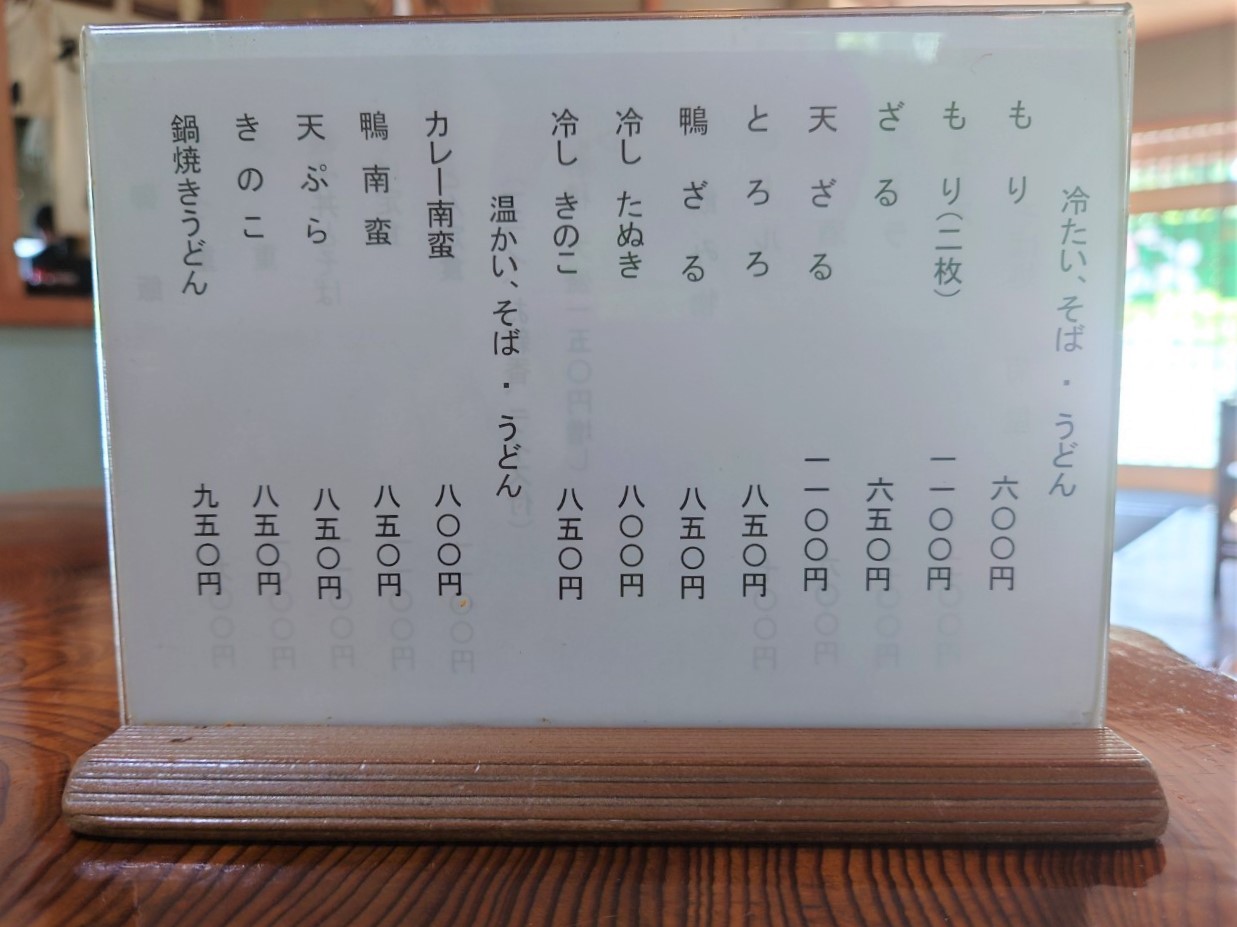 冷たい、そば・うどん
もり 六〇〇円
もり(二枚) 一一〇〇円
ざる 六五〇円
天ざる 一一〇〇円
とろろ 八五〇円
鴨ざる 八五〇円
冷し たぬき 八〇〇円
冷し きのこ 八五〇円
温かい、そば・うどん
カレー南蛮 八〇〇円
鴨南蛮 八五〇円
天ぷら 八五〇円
きのこ 八五〇円
鍋焼きうどん 九五〇円